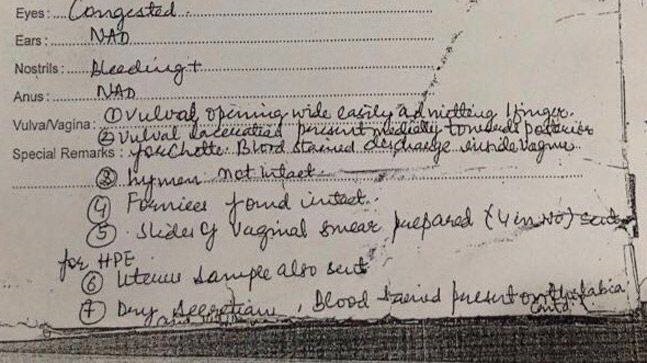 Eyes : Congested.
Ears : NAD
Nostrils : Bleeding +
Anus : NAD
Vulva/Vagina : ① Vulval opening wide easily admitting 1 finger.
② Vulval laceration present medially towards posterior
Special Remarks : forchette. Blood stained discharge inside vagina
③ hymen not intact.
④ Fornices found intact.
⑤ Slides of vaginal smear prepared (4 in No) sent
for HPE
⑥ Uterus sample also sent
⑦ Dry secretions, Blood stained present on labia